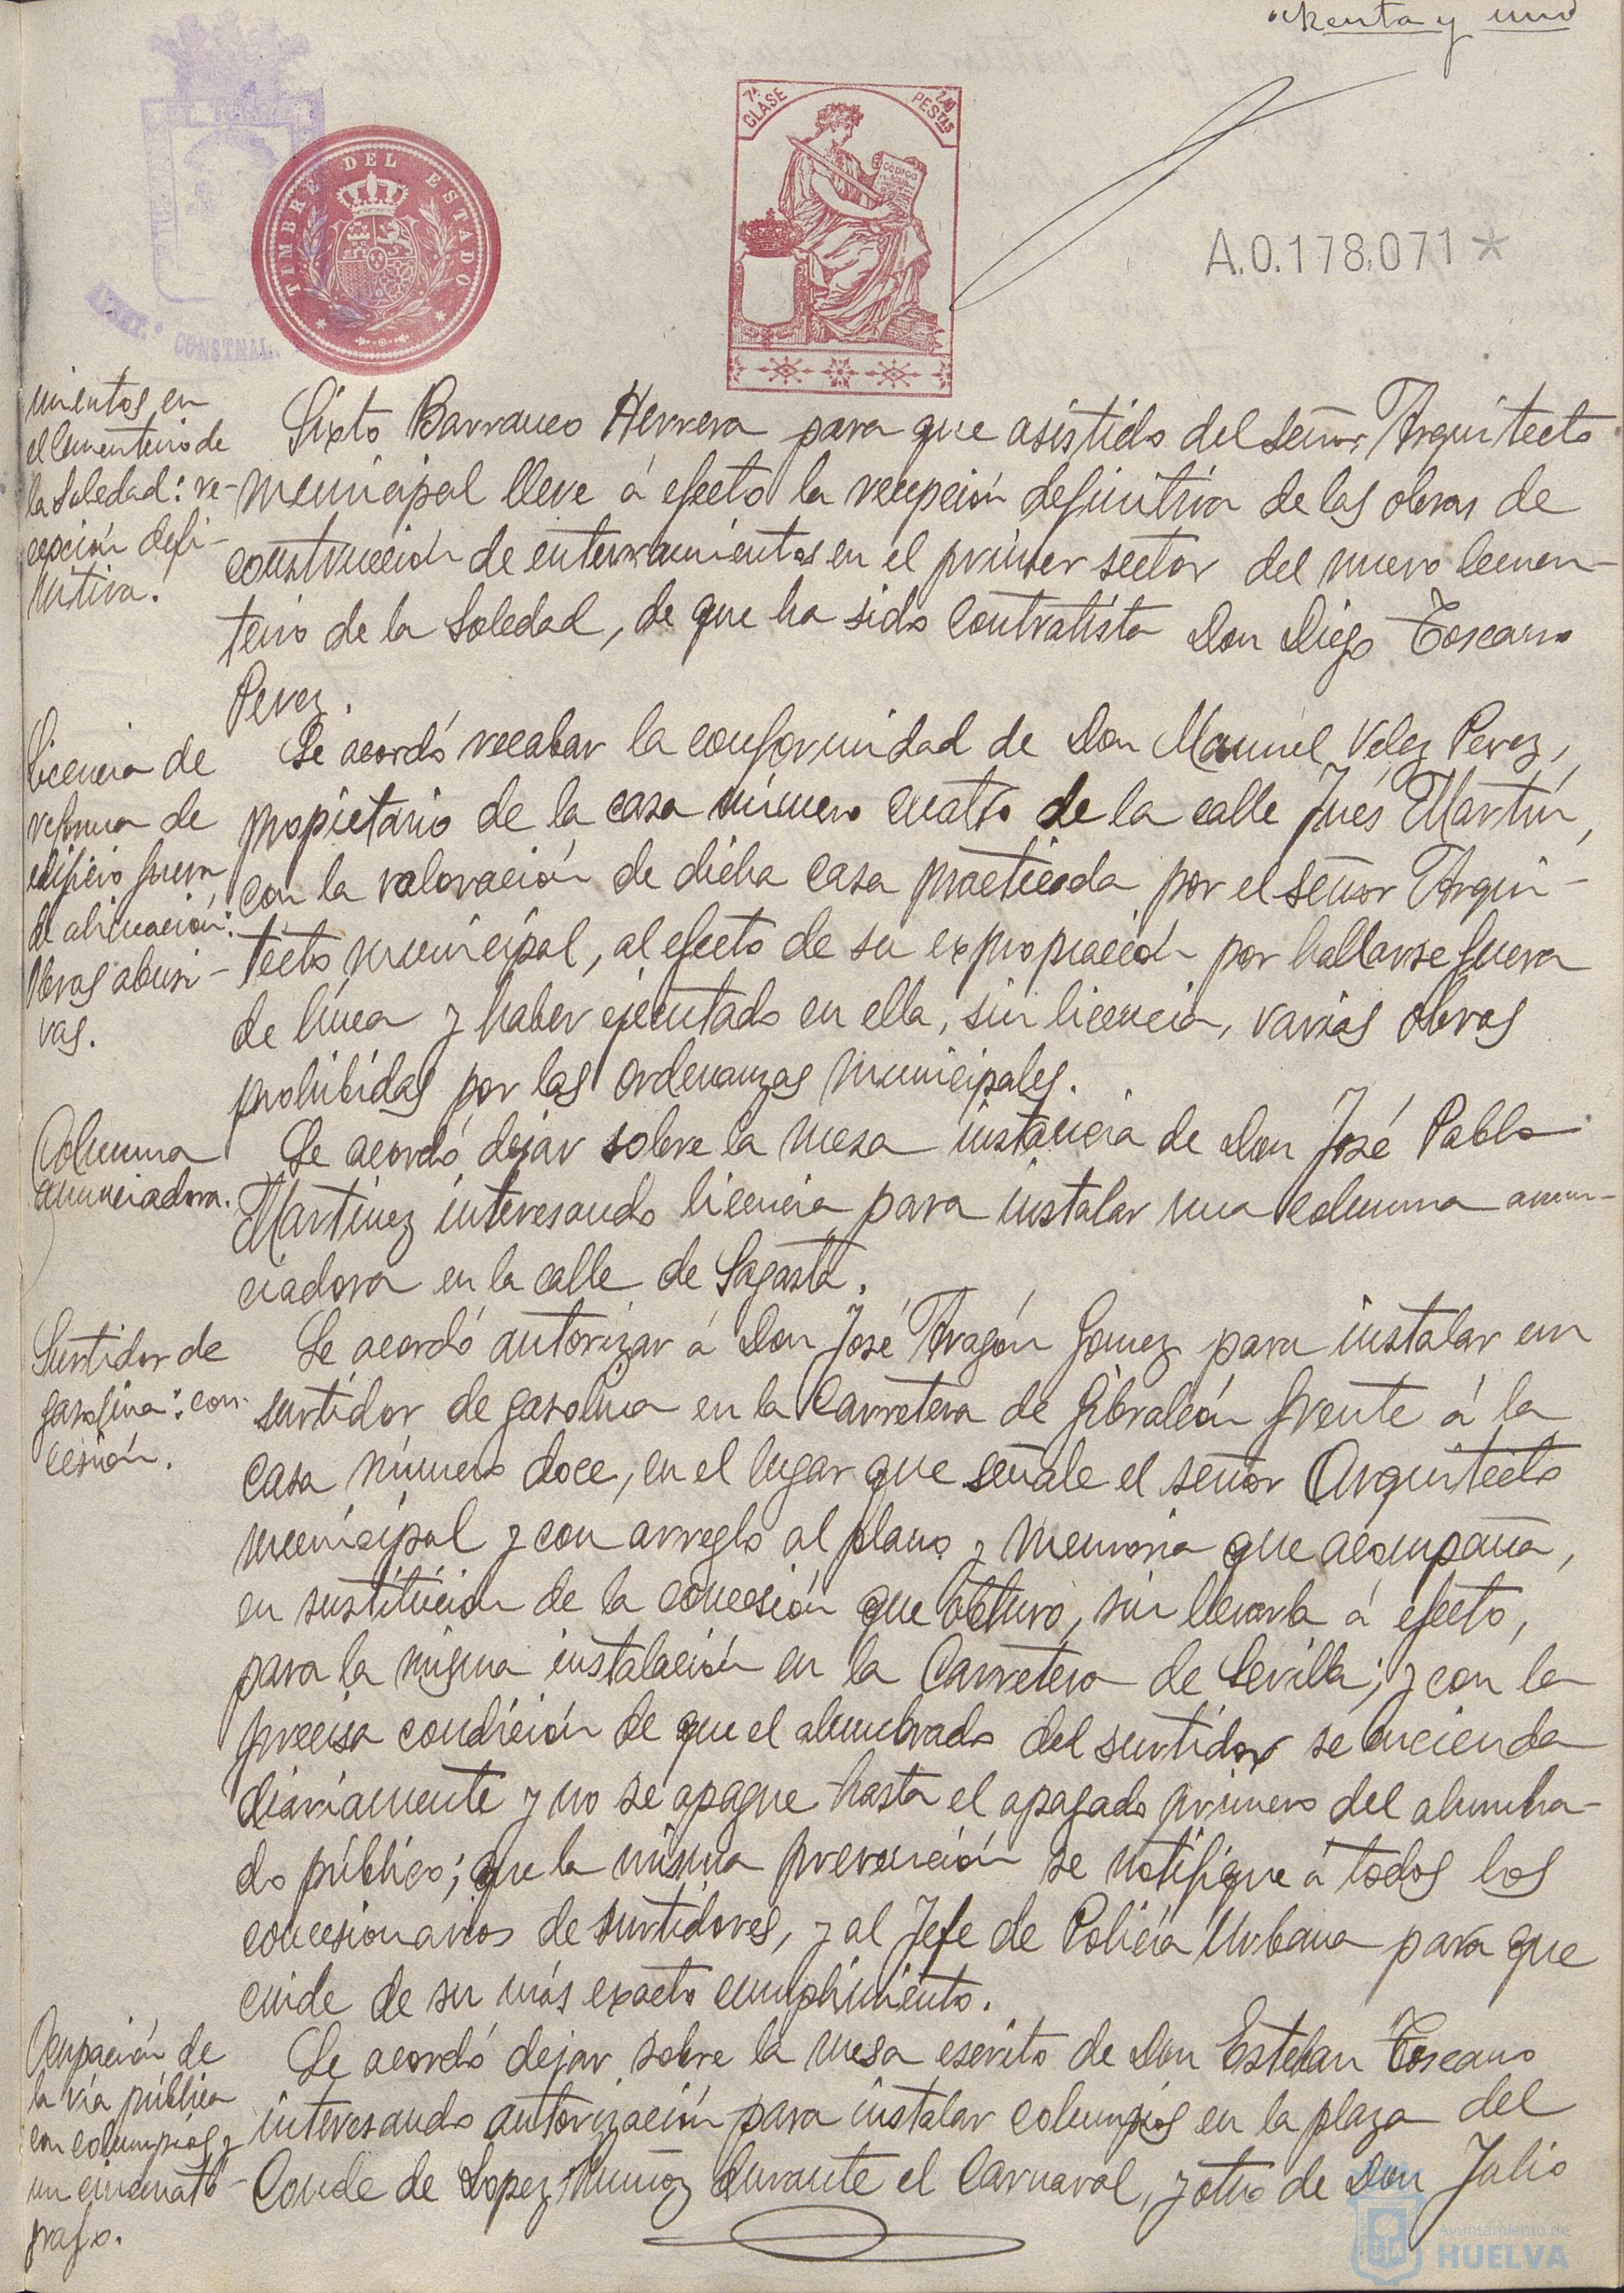 y uno
7ª CLASE
PESTAS
CÓDIGO
TIMBRE DEL ESTADO
CONSTNAL.
A.0.178,071*
mientos en
el Cementerio de
la Soledad: re-
cepción defi-
nitiva.
Sixto Barranco Herrera para que asistido del señor Arquitecto
municipal lleve á efecto la recepción definitiva de las obras de
construcción de enterramientos en el primer sector del nuevo Cemen-
terio de la Soledad, de que ha sido contratista Don Diego Toscano
Perez.
Licencia de
reforma de
edificio fuera
de alineación:
obras abusi-
vas.
Se acordó recabar la conformidad de Don Manuel Velez Perez,
propietario de la casa número cuatro de la calle Inés Martín,
con la valoración de dicha casa practicada por el señor Arqui-
tecto municipal, al efecto de su expropiación por hallarse fuera
de línea y haber ejecutado en ella, sin licencia, varias obras
prohibidas por las ordenanzas municipales.
Columna
anunciadora.
Se acordó dejar sobre la mesa instancia de Don José Pablo
Martinez interesando licencia para instalar una columna anun-
ciadora en la calle de Sagasta.
Surtidor de
gasolina: con-
cesión.
Se acordó autorizar á Don José Aragón Gomez para instalar un
surtidor de gasolina en la Carretera de Gibraleón frente á la
casa número doce, en el lugar que señale el señor Arquitecto
municipal y con arreglo al plano y memoria que acompaña,
en sustitución de la concesión que obtuvo, sin llevarla á efecto,
para la misma instalación en la Carretera de Sevilla; y con la
precisa condición de que el alumbrado del surtidor se encienda
diariamente y no se apague hasta el apagado primero del alumbra-
do público; que la misma prevención se notifique á todos los
concesionarios de surtidores, y al Jefe de Policía Urbana para que
cuide de su más exacto cumplimiento.
Ocupación de
la vía pública
con columpios y
un cinemató-
grafo.
Se acordó dejar sobre la mesa escrito de Don Esteban Toscano
interesando autorización para instalar columpios en la plaza del
Conde de Lopez Muñoz durante el Carnaval, y otro de Don Julio
Ayuntamiento de
HUELVA